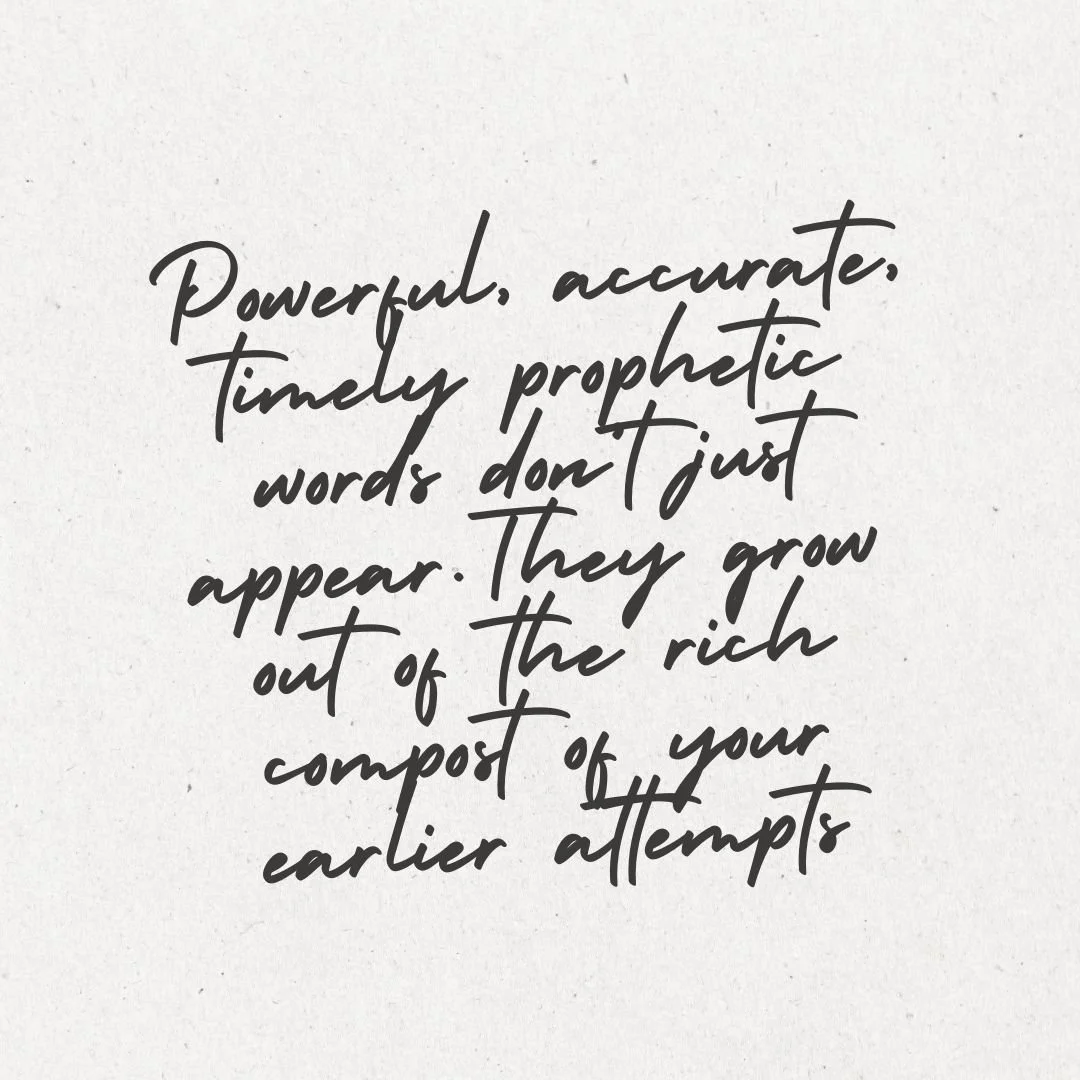 Powerful, accurate,
timely prophetic
words don't just
appear. They grow
out of the rich
compost of your
earlier attempts